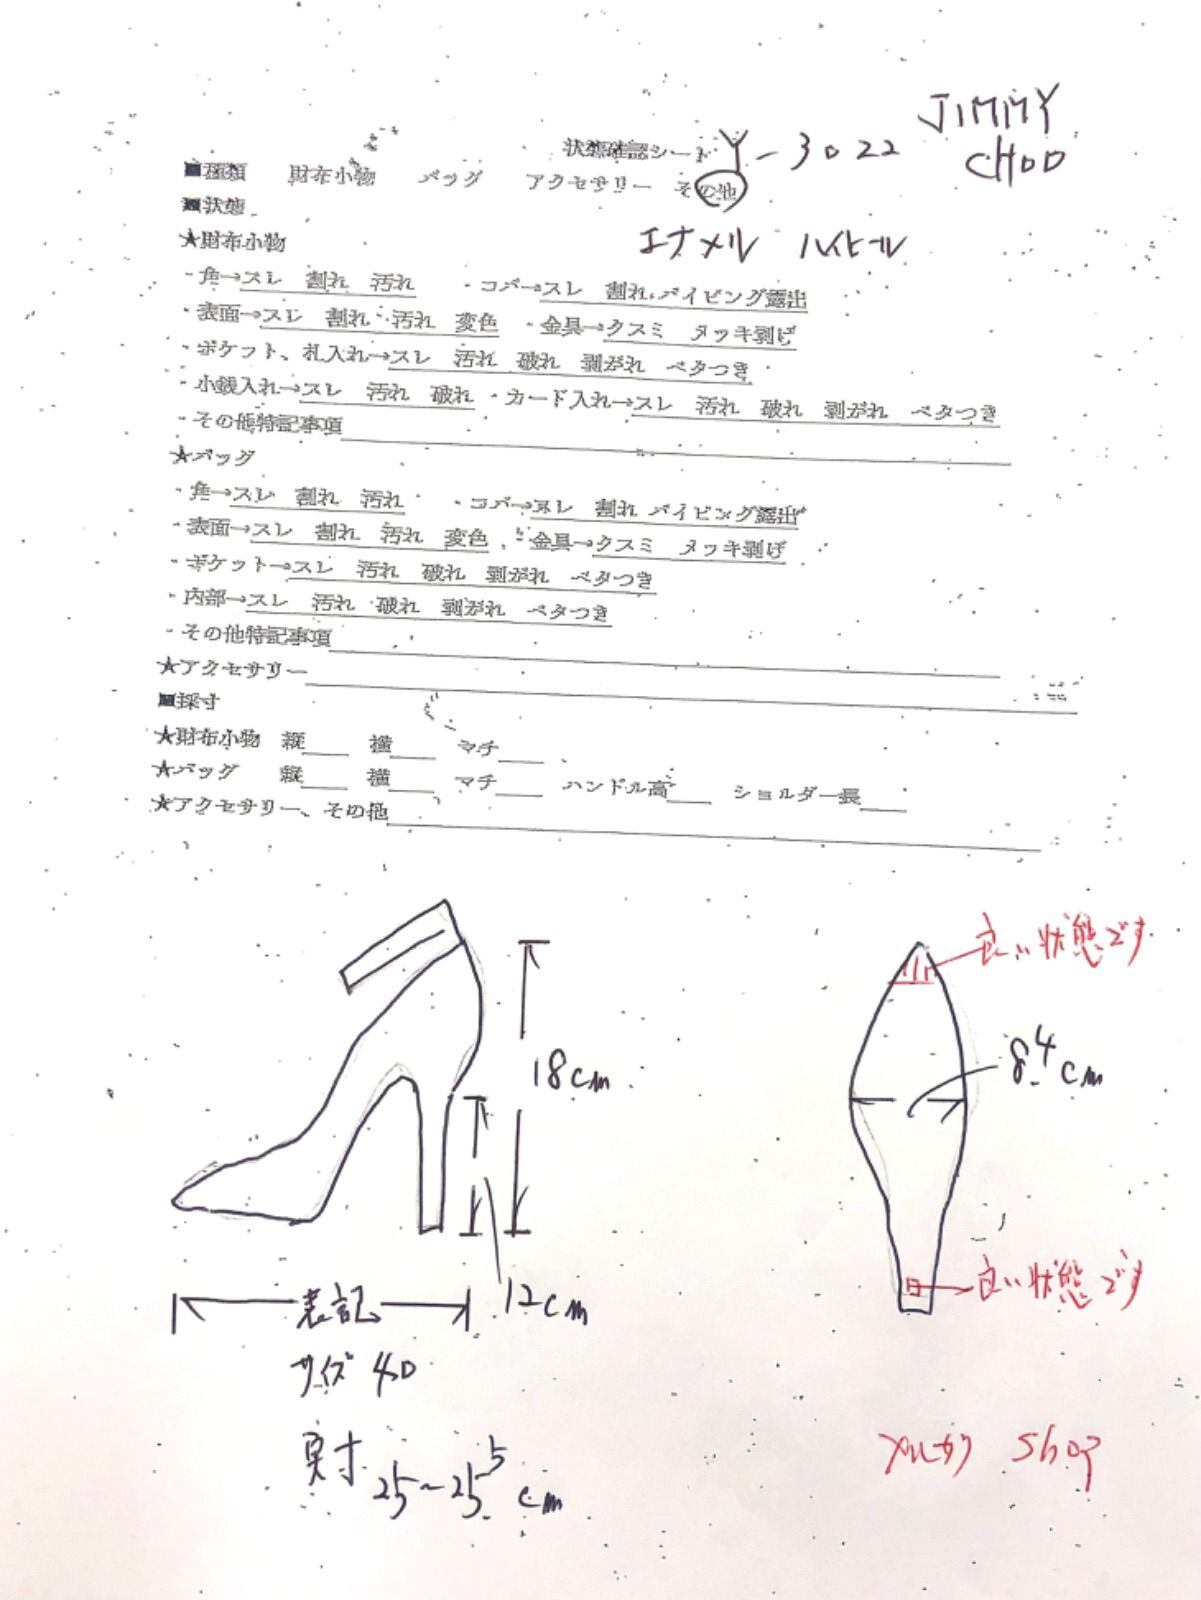 JIMMY
CHOO
状態確認シート Y-3022
■種類 財布小物 バッグ アクセサリー その他
■状態
エナメル ハイヒール
★財布小物
・角→スレ 割れ 汚れ ・コバ→スレ 割れ パイピング露出
・表面→スレ 割れ 汚れ 変色 ・金具→クスミ メッキ剥げ
・ポケット、札入れ→スレ 汚れ 破れ 剥がれ ベタつき
・小銭入れ→スレ 汚れ 破れ ・カード入れ→スレ 汚れ 破れ 剥がれ ベタつき
・その他特記事項
★バッグ
・角→スレ 割れ 汚れ ・コバ→スレ 割れ パイピング露出
・表面→スレ 割れ 汚れ 変色 ・金具→クスミ メッキ剥げ
・ポケット→スレ 汚れ 破れ 剥がれ ベタつき
・内部→スレ 汚れ 破れ 剥がれ ベタつき
・その他特記事項
★アクセサリー
■採寸
★財布小物 縦 横 マチ
★バッグ 縦 横 マチ ハンドル高 ショルダー長
★アクセサリー、その他
良い状態です
18cm
8.4cm
12cm
良い状態です
表記
サイズ 40
実寸
25～25.5cm
メルカリ shop